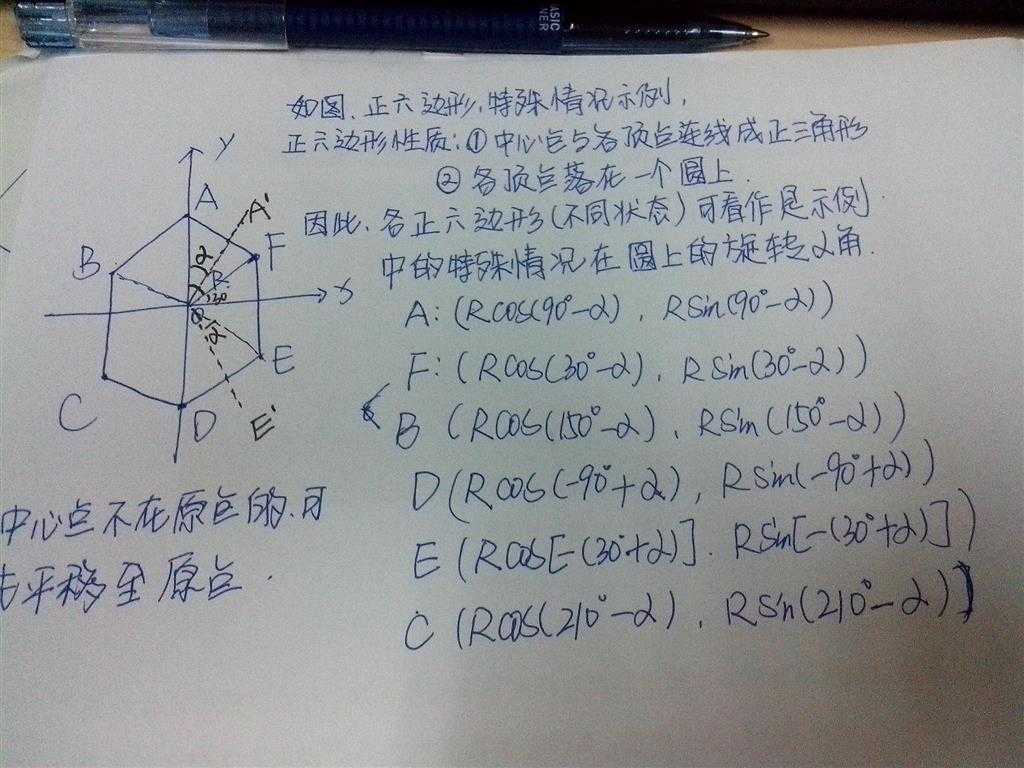 BASIC
NER
如图.正六边形,特殊情况示例,
正六边形性质:①中心点与各顶点连线成正三角形
②各顶点落在一个圆上.
因此.各正六边形(不同状态)可看作是示例
中的特殊情况在圆上的旋转α角.
A:(Rcos(90°-α),Rsin(90°-α))
F:(Rcos(30°-α),Rsin(30°-α))
B (Rcos(150°-α),Rsin(150°-α))
D(Rcos(-90°+α),Rsin(-90°+α))
E (Rcos[-(30°+α)].Rsin[-(30°+α)])
C (Rcos(210°-α),Rsin(210°-α))
y
A
A'
B
α
F
R
30
x
α
E
C
D
E'
中心点不在原点的.可
平移至原点.